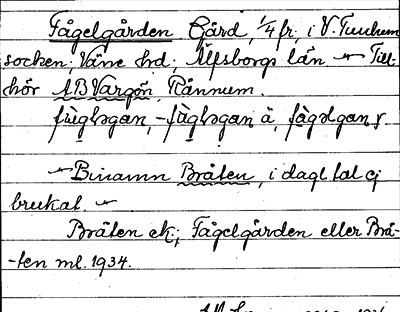 Fågelgården Gård, 1/4 fr, i V. Tunhem
socken; Väne hd; Älfsborgs län. — Till-
hör AB Vargön, Rånnum.
fùglsgan, -fùglsgan å, fàgəlgan,
— Binamn Bråten, i dagl tal ej
brukat. —
Bråten ek; Fågelgården eller Brå-
-ten ml. 1934.